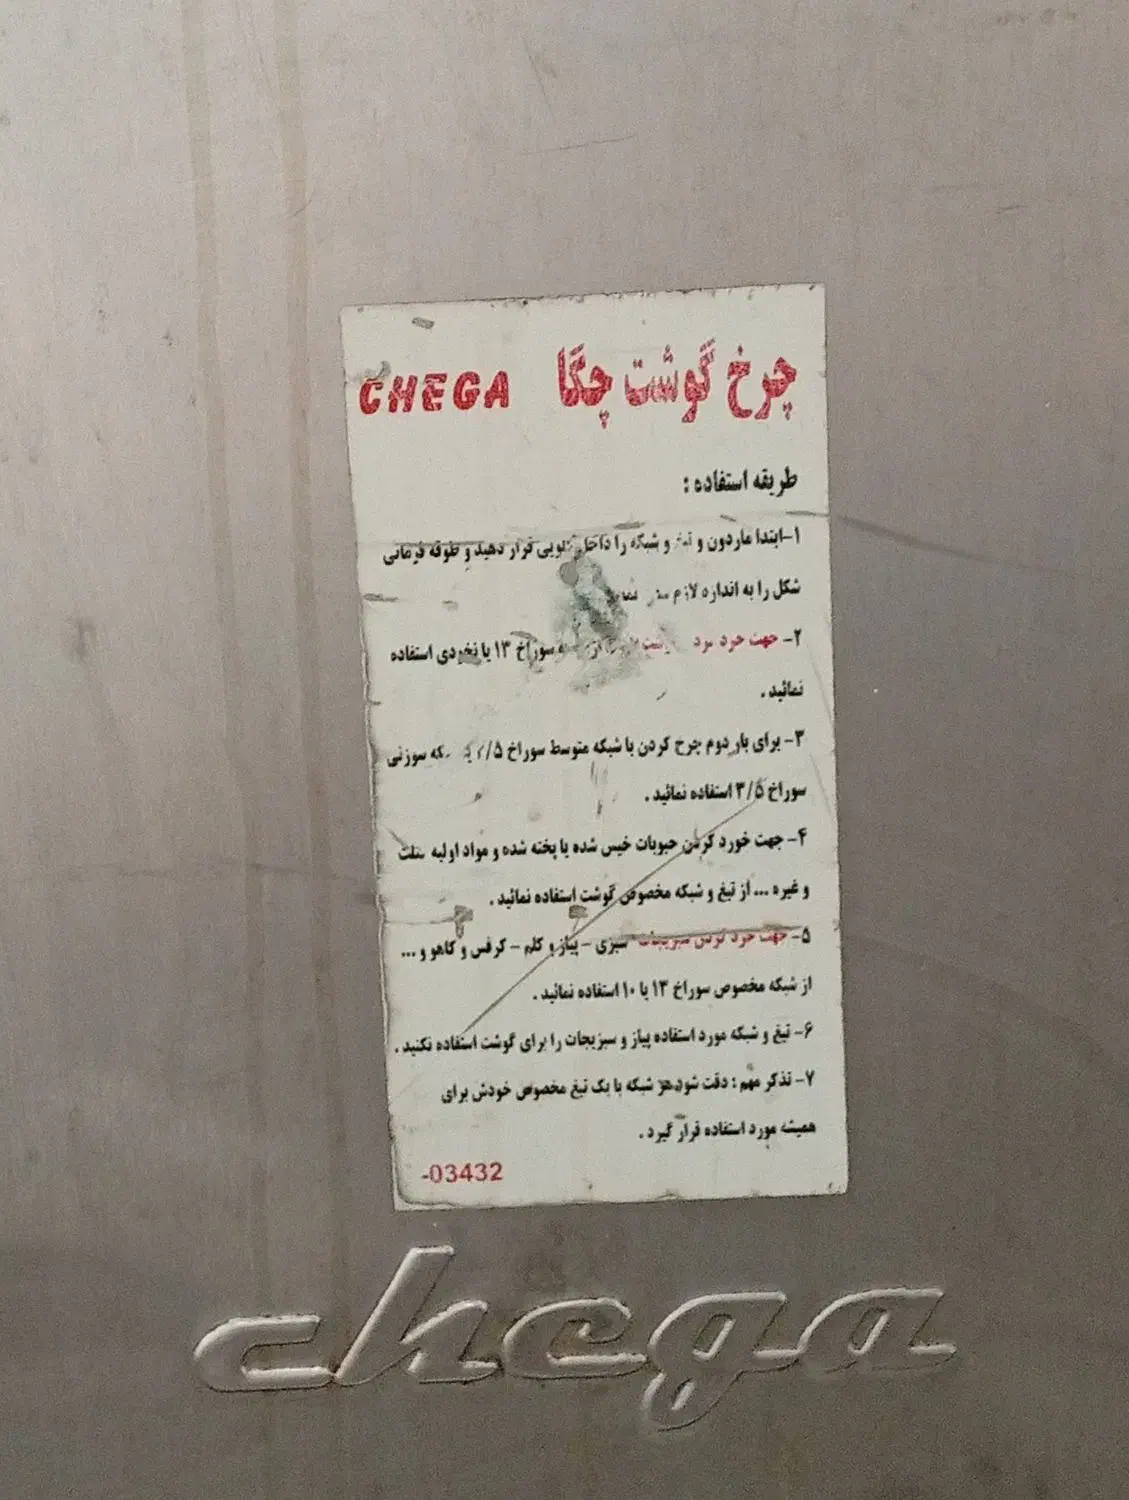 چرخ گوشت چگا CHEGA
طریقه استفاده :
۱-ابتدا ماردون و تیغ و شبکه را داخل گلویی قرار دهید و طوقه فرمانی
شکل را به اندازه لازم
۲- جهت خرد سوراخ ۱۳ یا نخودی استفاده
نمائید .
۳- برای بار دوم چرخ کردن با شبکه متوسط سوراخ سوزنی
سوراخ ۳/۵ استفاده نمائید .
۴- جهت خورد کردن حبوبات خیس شده یا پخته شده و مواد اولیه
و غیره ... از تیغ و شبکه مخصوص گوشت استفاده نمائید .
۵- جهت خرد کردن سبزیجات سبزی - پیاز و کلم - کرفس و کاهو و ...
از شبکه مخصوص سوراخ ۱۳ یا ۱۰ استفاده نمائید .
۶- تیغ و شبکه مورد استفاده پیاز و سبزیجات را برای گوشت استفاده نکنید .
۷- تذکر مهم : دقت شود هر شبکه با یک تیغ مخصوص خودش برای
همیشه مورد استفاده قرار گیرد .
-03432
chega